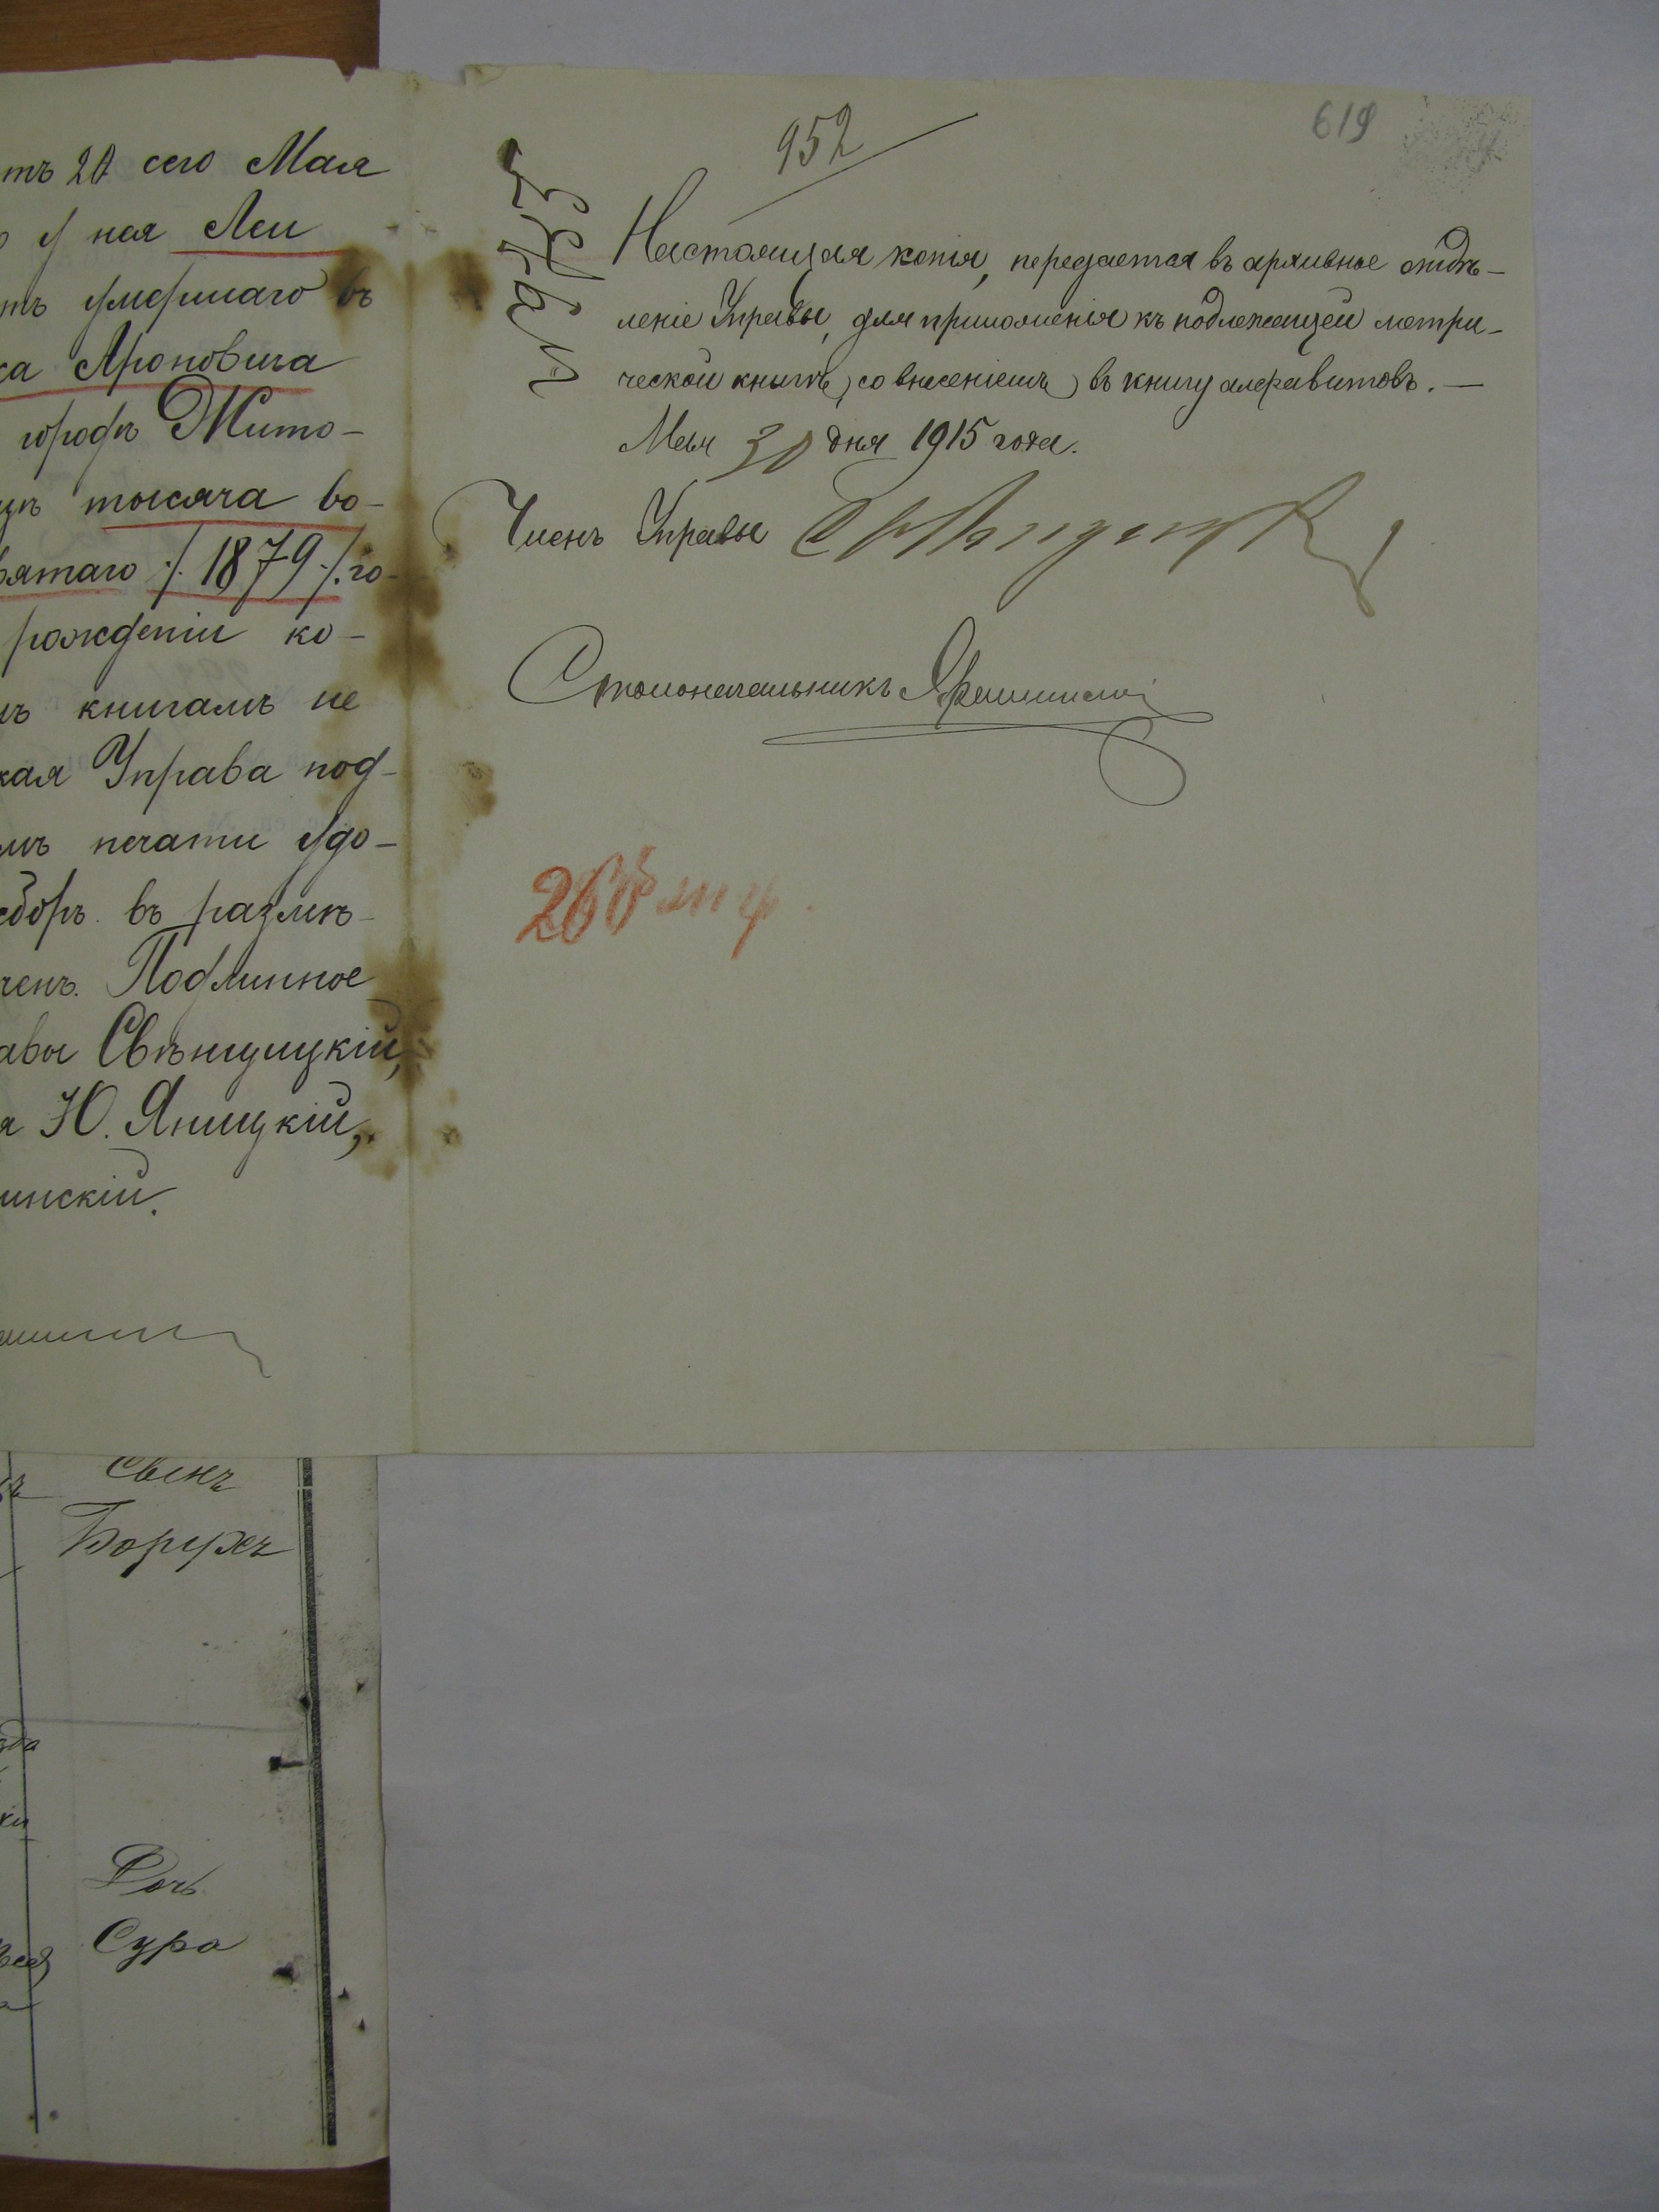 тъ 20 сего Мая
ная Леи
тъ умершаго въ
ка Ароновича
городѣ Жито-
тысяча во-
вятаго ./. 1879 ./. го-
рожденіи ко-
книгамъ не
кая Управа под-
мъ печати удо-
сборъ въ размѣ-
ченъ. Подлинное
авы Свѣнцицкій,
а Ю. Яницкій,
инскій.
952
619
Настоящая копія, передается въ архивное отдѣ-
леніе Управы, для приложенія къ подлежащей метри-
ческой книгѣ, со внесеніемъ въ книгу алфавитовъ. —
Мая 30 дня 1915 года.
Членъ Управы
Столоначальникъ
Сынъ
Борухъ
Дочь
Сура